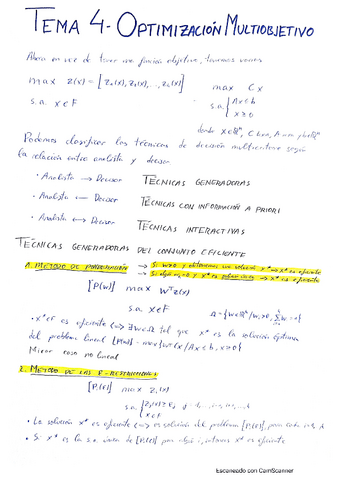 TEMA 4- OPTIMIZACIÓN MULTIOBJETIVO
Ahora en vez de tener una función objetivo, tenemos varias
max z(x) = [z₁(x), z₂(x), ..., zₚ(x)]
s.a. x∈F
max Cx
s.a. { Ax≤b
x≥0
donde x∈ℝⁿ, C
Podemos clasificar las técnicas de decisión multicriterio según
la relación entre analista y decisor
· Analista → Decisor TÉCNICAS GENERADORAS
· Analista ← Decisor TÉCNICAS CON INFORMACIÓN A PRIORI
· Analista ↔ Decisor TÉCNICAS INTERACTIVAS
TÉCNICAS GENERADORAS DEL CONJUNTO EFICIENTE
1. MÉTODO DE PONDERACIÓN → Si w>0 y obtenemos una solución x* ⇒ x* es eficiente
→ Si algún wᵢ=0 y x* es x* es eficiente
[P(w)] max wᵀz(x)
s.a. x∈F
· x*∈F es eficiente ⟺ ∃ w∈Ω tal que x* es la solución óptima
del problema lineal [P(w)] = max{wᵀCx / Ax≤b, x≥0}
Mirar caso no lineal
2. MÉTODO DE LAS RESTRICCIONES
max
s.a.
x∈F
· La solución x* es eficiente ⟺ es solución del problema para cada
· Si x* es la s.o. única de por algún i, entonces x* es eficiente
Escaneado con CamScanner